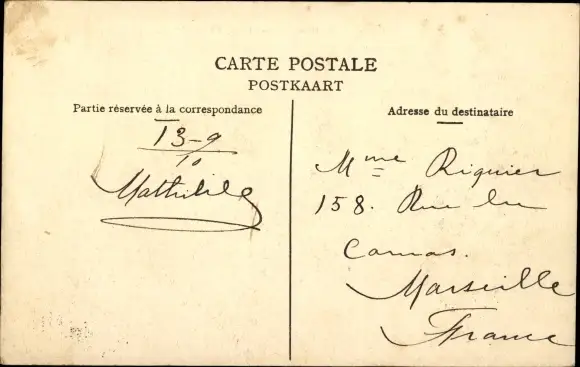 CARTE POSTALE
POSTKAART
Partie réservée à la correspondance
13-9
10
Mathilde
Adresse du destinataire
Mme Riquier
158. Rue du
Camas.
Marseille
France